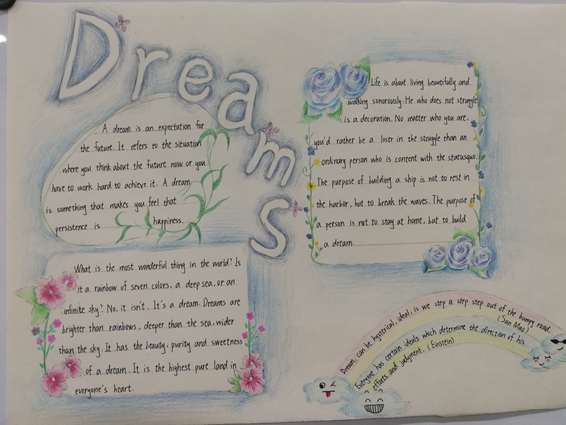 Dreams
A dream is an expectation for
the future. It refers to the situation
where you think about the future now or you
have to work hard to achieve it. A dream
is something that makes you feel that
persistence is happiness.
Life is about living beautifully and
walking sonorously. He who does not struggle
is a decoration. No matter who you are,
you'd rather be a loser in the struggle than an
ordinary person who is content with the statusquo.
The purpose of building a ship is not to rest in
the harbor, but to break the waves. The purpose of
a person is not to stay at home, but to build
a dream.
What is the most wonderful thing in the world? Is
it a rainbow of seven colors, a deep sea, or an
infinite sky? No, it isn't. It's a dream. Dreams are
brighter than rainbows, deeper than the sea, wider
than the sky. It has the beauty, purity and sweetness
of a dream. It is the highest pure land in
everyone's heart.
Dream, can be hysterical, ideal, is we step a step step out of the bumpy road.
(San Mao)
Everyone has certain ideals which determine the direction of his
efforts and judgment. (Einstein)